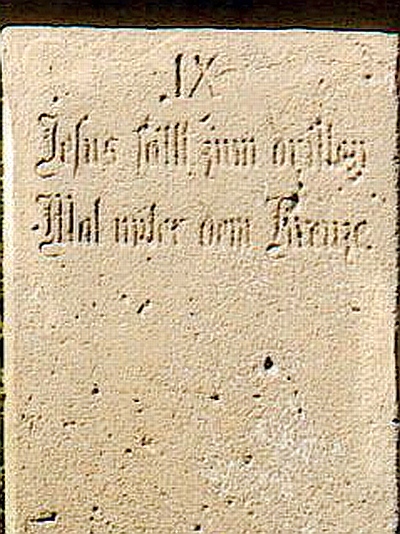 IX
Jesus fällt zum dritten
Mal unter dem Kreuze.